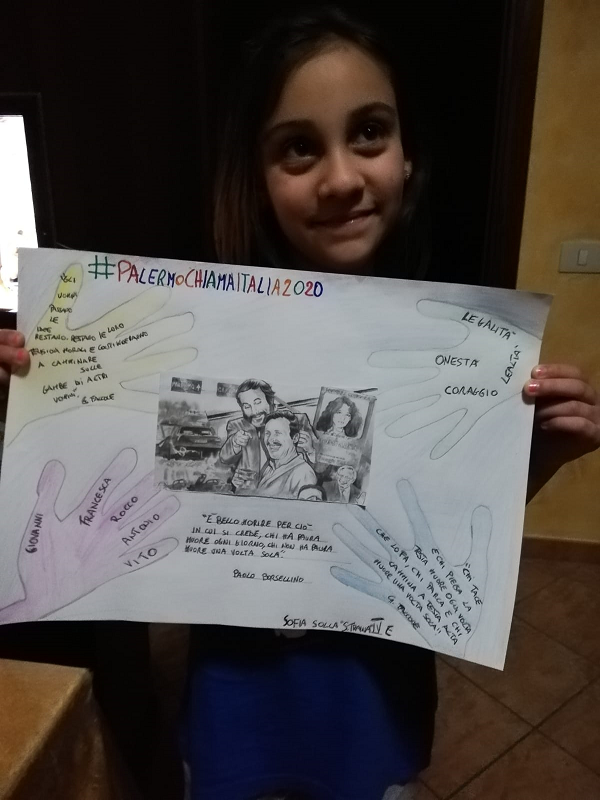 #PALERMOCHIAMAITALIA2020
GLI
UOMINI
PASSANO
LE
IDEE
RESTANO. RESTANO LE LORO
TENSIONI MORALI E CONTINUERANNO
A CAMMINARE
SULLE
GAMBE DI ALTRI
UOMINI".
G. FALCONE
LEGALITA'
LEALTA'
ONESTA
CORAGGIO
"È BELLO MORIRE PER CIÒ
IN CUI SI CREDE, CHI HA PAURA
MUORE OGNI GIORNO, CHI NON HA PAURA
MUORE UNA VOLTA SOLA".
PAOLO BORSELLINO
GIOVANNI
FRANCESCA
ROCCO
ANTONIO
VITO
"CHI TACE
E CHI PIEGA LA
TESTA MUORE OGNI VOLTA
CHE LO FA, CHI PARLA E CHI
CAMMINA A TESTA ALTA
MUORE UNA VOLTA SOLA".
G. FALCONE
SOFIA SOLLA IV E